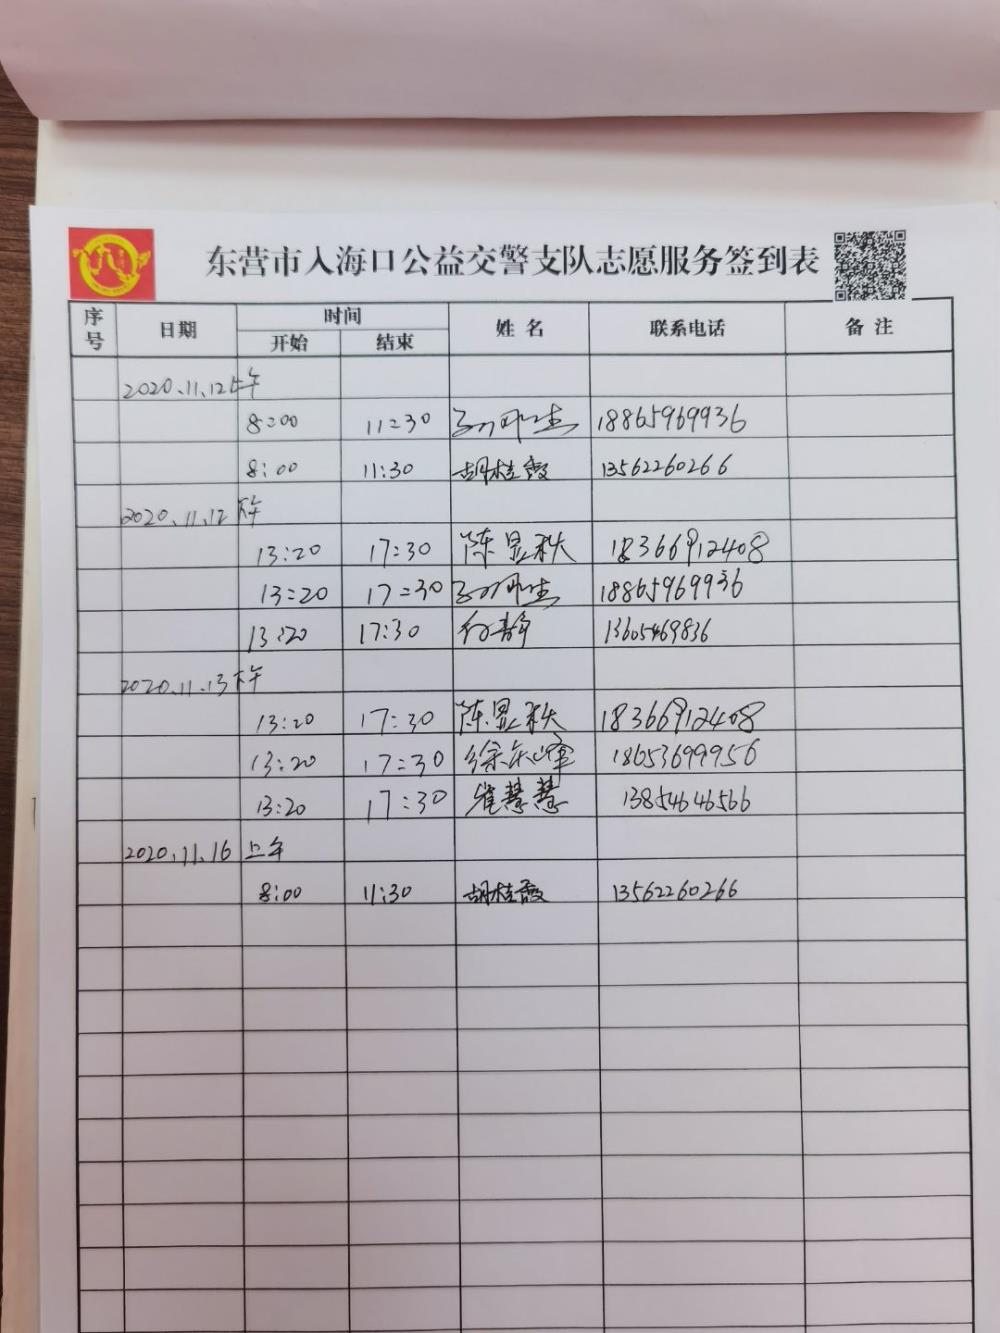 东营市入海口公益交警支队志愿服务签到表
序号 日期 时间 姓名 联系电话 备注
开始 结束
2020.11.12上午
8:00 11:30 18865969936
8:00 11:30 胡桂霞 13562260266
2020.11.12 下午
13:20 17:30 陈昱秩 18366912408
13:20 17:30 18865969936
13:20 17:30 静 13605469836
2020.11.13下午
13:20 17:30 陈昱秩 18366912408
13:20 17:30 徐东峰 18653699956
13:20 17:30 崔慧慧 13854646566
2020.11.16 上午
8:00 11:30 胡桂霞 13562260266